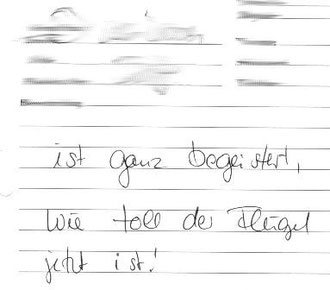 ist ganz begeistert,
wie toll der Flügel
jetzt ist!